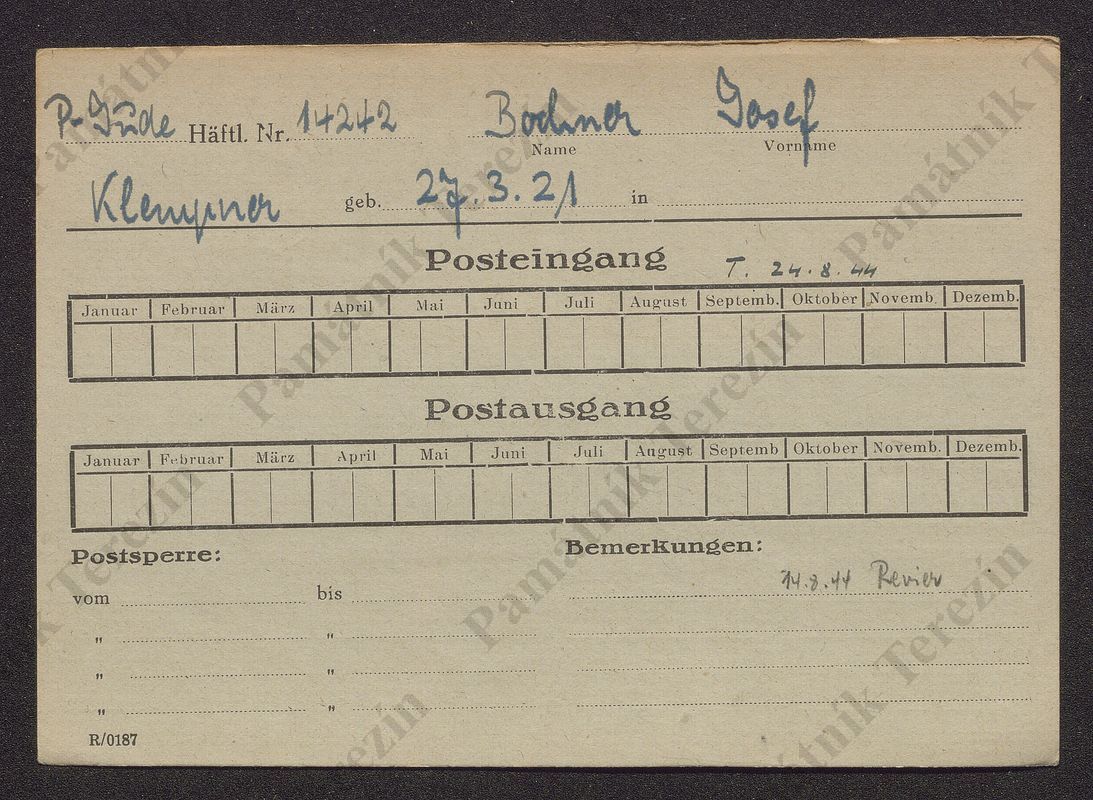 P-Jude Häftl. Nr. 14242 Bochner Josef
Name Vorname
Klempner geb. 27.3.21 in
Posteingang T. 24.8.44
Januar Februar März April Mai Juni Juli August Septemb. Oktober Novemb. Dezemb.
Postausgang
Januar Februar März April Mai Juni Juli August Septemb Oktober Novemb. Dezemb.
Postsperre: Bemerkungen:
14.8.44 Revier
vom bis
" "
" "
" "
R/0187
Památník Terezín